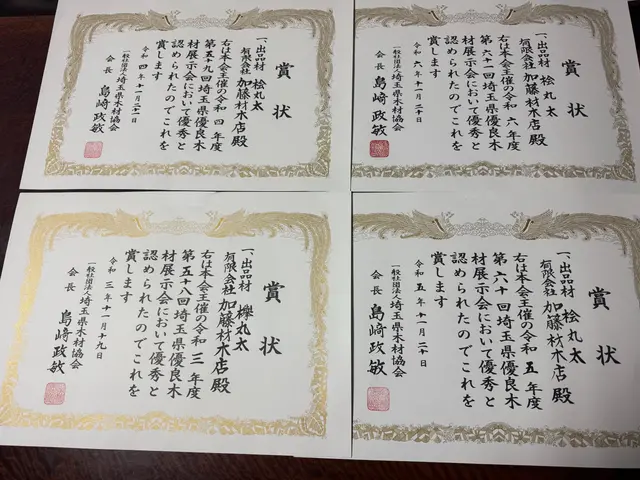 賞状
一、出品材 桧丸太
有限会社 加藤材木店 殿
右は本会主催の令和四年度
第五十九回埼玉県優良木
材展示会において優秀と
認められたのでこれを
賞します
令和四年十一月二十一日
一般社団法人埼玉県木材協会
会長 島崎政敏
賞状
一、出品材 桧丸太
有限会社 加藤材木店 殿
右は本会主催の令和六年度
第六十一回埼玉県優良木
材展示会において優秀と
認められたのでこれを
賞します
令和六年十一月二十日
一般社団法人埼玉県木材協会
会長 島崎政敏
賞状
一、出品材 欅丸太
有限会社 加藤材木店 殿
右は本会主催の令和三年度
第五十八回埼玉県優良木
材展示会において優秀と
認められたのでこれを
賞します
令和三年十一月十九日
一般社団法人埼玉県木材協会
会長 島崎政敏
賞状
一、出品材 桧丸太
有限会社 加藤材木店 殿
右は本会主催の令和五年度
第六十回埼玉県優良木
材展示会において優秀と
認められたのでこれを
賞します
令和五年十一月二十日
一般社団法人埼玉県木材協会
会長 島崎政敏